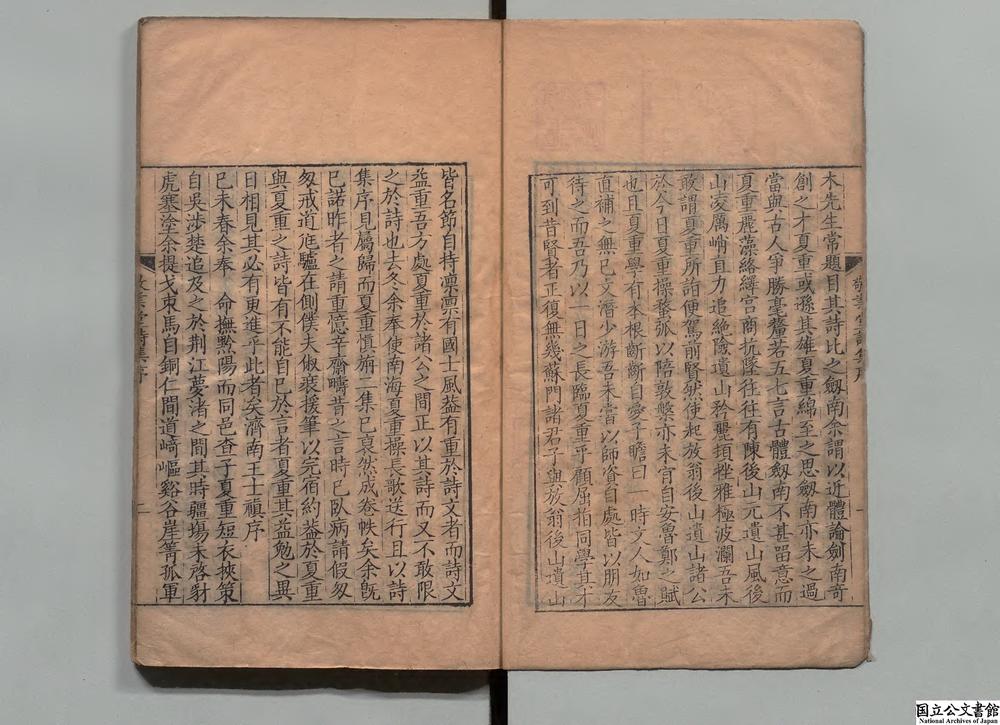 木先生常題目其詩比之劔南余謂以近體論劍南奇
創之才夏重或遜其雄夏重綿至之思劔南亦未之過
當與古人爭勝毫釐若五七言古體劔南不甚畱意而
夏重麗藻絡繹宮商抗墜往往有陳後山元遺山風後
山凌厲峭直力追絶險遺山矜麗頓挫雅極波瀾吾未
敢謂夏重所詣便駕前賢然使起放翁後山遺山諸公
於今日夏重操蝥弧以陪敦槃亦未肯自安魯鄭之賦
也且夏重學有本根斷斷自愛子瞻曰一時文人如魯
直補之無己文潛少游吾未嘗以師資自處皆以朋友
待之而吾乃以一日之長臨夏重乎顧屈指同學其才
可到昔賢者正復無幾蘇門諸君子與放翁後山遺山
敬業堂詩集序
一
皆名節自持凛凛有國士風葢有重於詩文者而詩文
益重吾方處夏重於諸公之間正以其詩而又不敢限
之於詩也去冬余奉使南海夏重操長歌送行且以詩
集序見屬歸而夏重慎旃二集已裒然成卷帙矣余旣
已諾昨者之請重憶辛齋疇昔之言時已臥病請假匆
匆戒道疲驢在側僕夫俶裝援筆以完宿約葢於夏重
與夏重之詩皆有不能自已於言者夏重其益勉之異
日相見其必有更進乎此者矣濟南王士禛序
已未春余奉 命撫黔陽而同邑查子夏重短衣挾策
自吳渉楚追及之於荆江夢渚之間其時疆塲未啓豺
虎寒塗余提戈束馬自銅仁間道﨑嶇谿谷崖箐孤軍
敬業堂詩集序
二
国立公文書館
National Archives of Japan